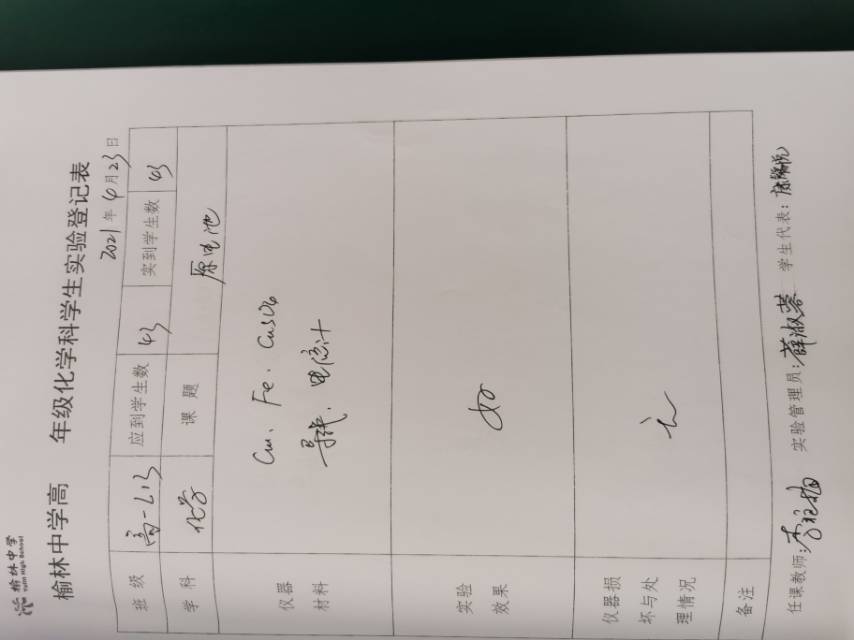 榆林中学
Yulin High School
榆林中学高 年级化学科学生实验登记表
2021年4月23日
班级 高一(13) 应到学生数 43 实到学生数 43
学科 化学 课题 原电池
仪器
材料
Cu、Fe、CuSO4
导线、电流计
实验
效果
好
仪器损
坏与处
理情况
无
备注
任课教师: 实验管理员:薛淑蓉 学生代表: